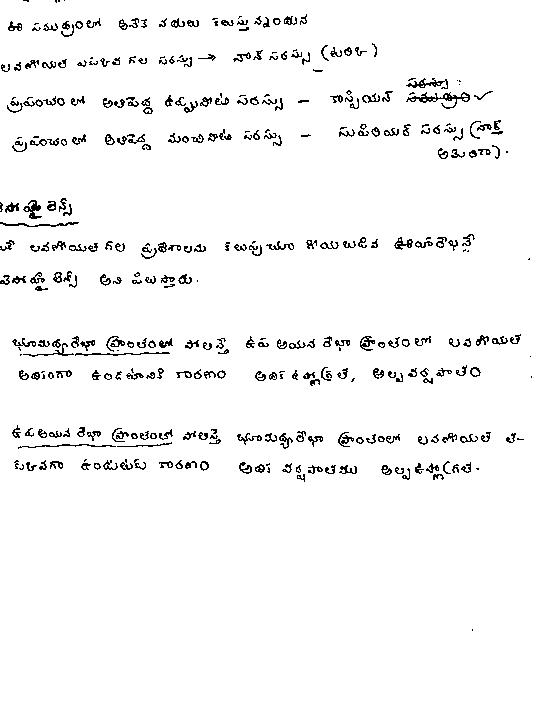 ఈ సముద్రంలో అనేక నదులు కలుస్తున్నందున
లవణీయత ఎక్కువ గల సరస్సు → వాన్ సరస్సు (టర్కీ)
ప్రపంచంలో అతిపెద్ద ఉప్పునీటి సరస్సు - కాస్పియన్ సరస్సు
ప్రపంచంలో అతిపెద్ద మంచినీటి సరస్సు - సుపీరియర్ సరస్సు (నార్త్
అమెరికా).
లవణీయత గల ప్రదేశాలను కలుపుచూ గీయబడిన ఊహారేఖనే
అని పిలుస్తారు.
భూమధ్యరేఖా ప్రాంతంలో పోలిస్తే ఉప అయన రేఖా ప్రాంతంలో లవణీయత
అధికంగా ఉండటానికి కారణం అధిక ఉష్ణోగ్రత, అల్ప వర్షపాతం
ఉప అయన రేఖా ప్రాంతంలో పోలిస్తే భూమధ్యరేఖా ప్రాంతంలో లవణీయత త-
క్కువగా ఉండుటకు కారణం అధిక వర్షపాతము అల్ప ఉష్ణోగ్రత.